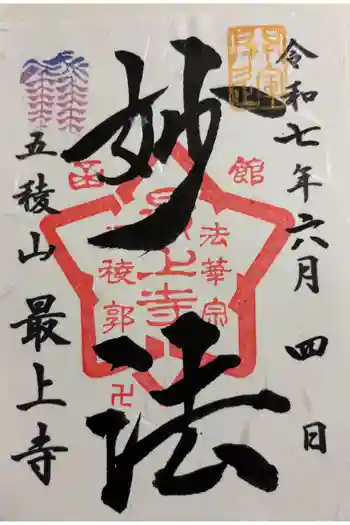 令和七年六月四日
妙法
函館
法華宗
最上寺
稜郭
卍
五稜山 最上寺